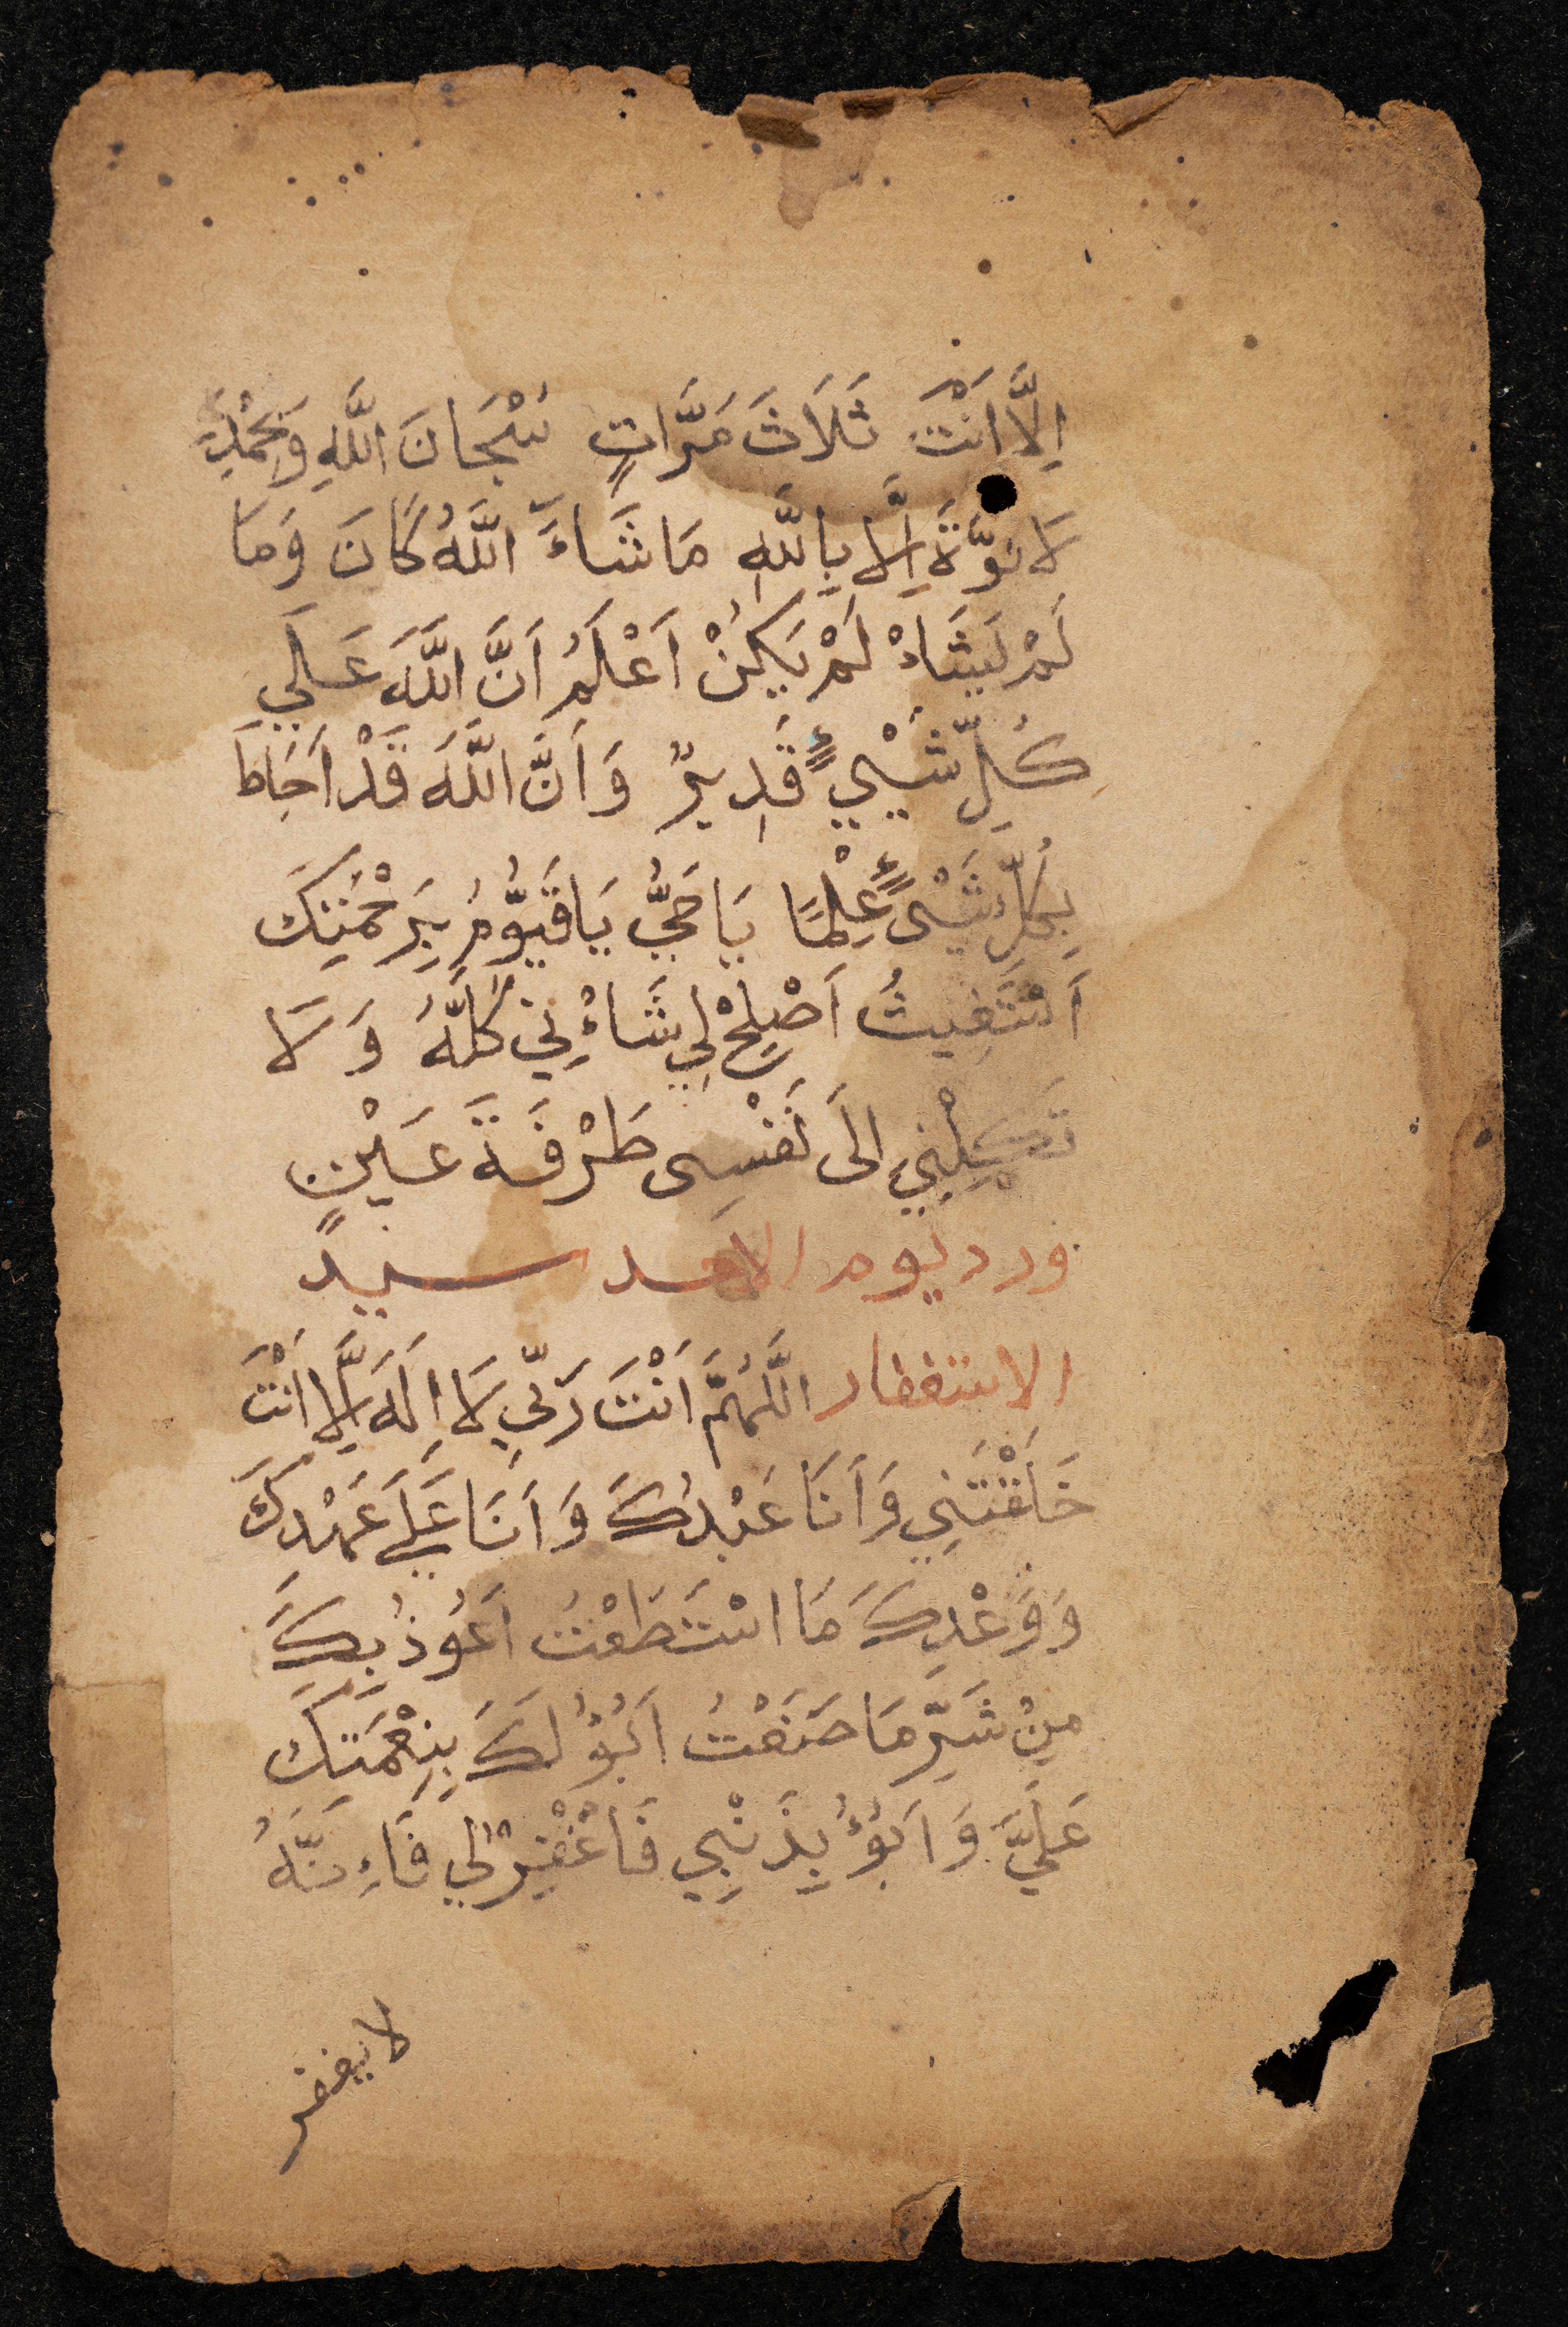 اِلَّا اَنْتَ ثَلَاثَ مَرَّاتٍ سُبْحَانَ اللَّهِ وَبِحَمْدِهِ
لَا قُوَّةَ اِلَّا بِاللَّهِ مَا شَاءَ اللَّهُ كَانَ وَمَا
لَمْ يَشَاءْ لَمْ يَكُنْ اَعْلَمُ اَنَّ اللَّهَ عَلَي
كُلِّ شَيْئٍ قَدِيرٌ وَ اَنَّ اللَّهَ قَدْ اَحَاطَ
بِكُلِّ شَيْیٍٔ عِلْمًا يَا حَيُّ يَا قَيُّوْمُ بِرَحْمَتِكَ
اَسْتَغِيثُ اَصْلِحْ لِي شَاءْنِي كُلَّهُ وَ لَا
تَكِلْنِي اِلَى نَفْسِى طَرْفَةَ عَيْنٍ
ورد يوم الاحد سيد
الاستغفار اللَّهُمَّ اَنْتَ رَبِّي لَا اِلَهَ اِلَّا اَنْتَ
خَلَقْتَنِي وَ اَنَا عَبْدُكَ وَ اَنَا عَلَي عَهْدِكَ
وَ وَعْدِكَ مَا اسْتَطَعْتُ اَعُوْذُ بِكَ
مِنْ شَرِّ مَا صَنَعْتُ اَبُؤُ لَكَ بِنِعْمَتِكَ
عَلَيَّ وَ اَبُؤُ بِذَنْبِي فَاغْفِرْ لِي فَاِءنَّهُ
لا يغفر